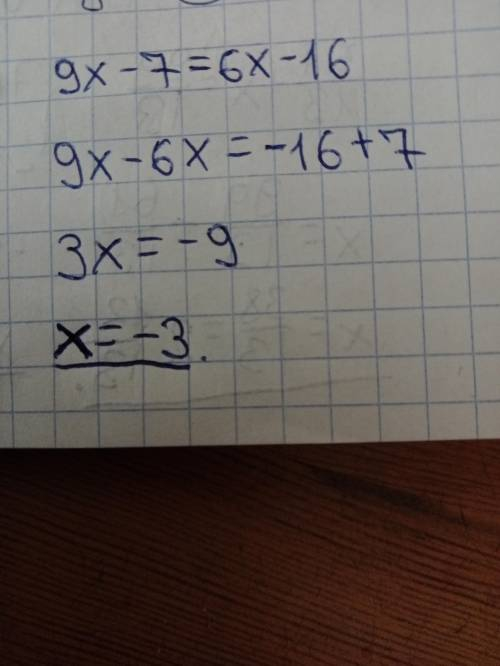 9x-7=6x-16
9x-6x=-16+7
3x=-9
x=-3.